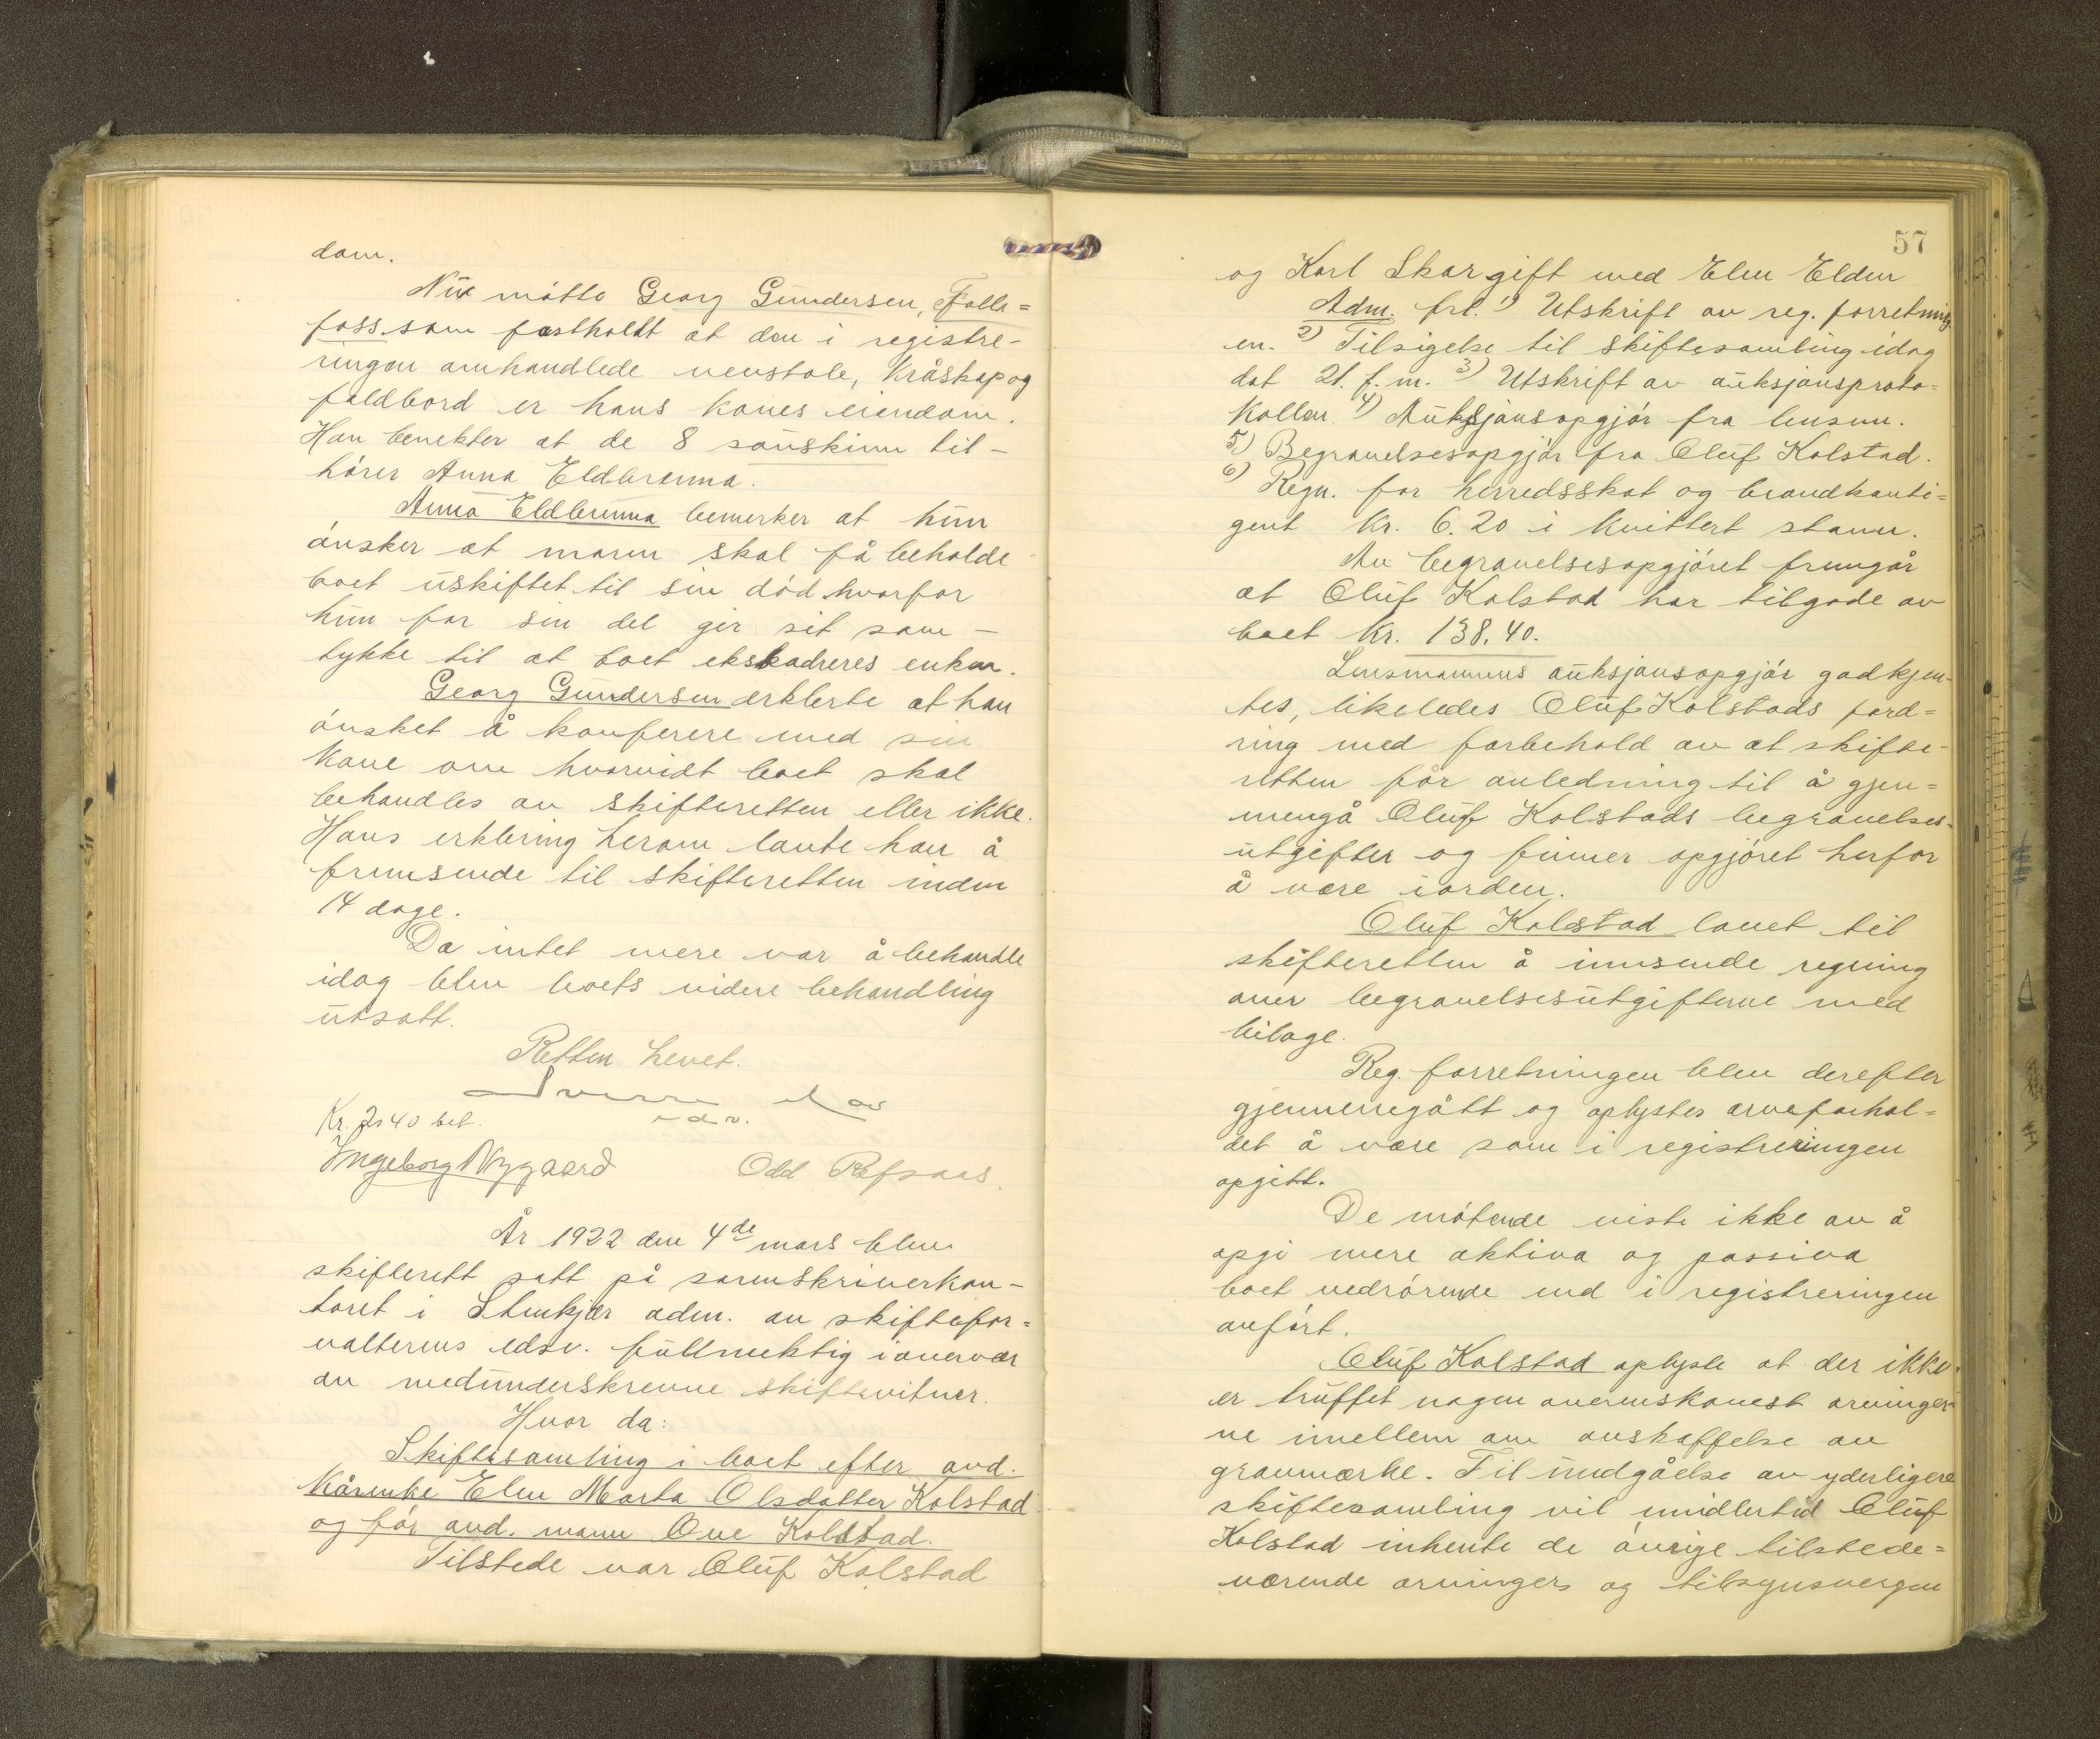 dom.
Nu møtte Georg Gundersen, Folla=
foss som fastholdt at den i registre-
ringen omhandlede vevstole, kråskap og
foldbord er hans kones eiendom.
Han benekter at de 8 sauskinn til-
hører Anna Eldbrenna.
Anna Eldbrenna bemerker at hun
ønsker at mann skal få beholde
boet uskiftet til sin død hvorfor
hun for sin del gir sit sam-
tykke til at boet ekstraderes enken.
Georg Gundersen erklerte at han
ønsket å konferere med sin
kone om hvorvidt boet skal
behandles av skifteretten eller ikke.
Hans erklering herom lovte han å
fremsende til skifteretten inden
14 dage.
Da intet mere var å behandle
idag blev boets videre behandling
utsatt.
Retten hevet.
edsv.
Kr. 2,40 bet.
Ingeborg Nygaard Odd Refsaas.
År 1922 den 4de mars blev
skifterett satt på sorenskriverkon-
toret i Stenkjær adm. av skiftefor=
valterens edsv. fullmektig i overvær
av medunderskrevne skiftevitner.
Hvor da:
Skiftesamling i boet efter avd.
kårenke Elen Marta Olsdatter Kolstad
og før avd. mann Ove Kolstad.
Tilstede var Oluf Kolstad
57
og Karl Skar gift med Elen Elden
Adm. frl. 1) Utskrift av reg. forretning
en. 2) Tilsigelse til skiftesamling idag
dat 21. f. m. 3) Utskrift av auksjonsproto=
kollen 4) Auksjonsopgjør fra lensm.
5) Begravelsesopgjør fra Oluf Kolstad.
6) Regn. for herredsskat og brandkonti=
gent kr. 6.20 i kvittert stann.
Av begravelsesopgjøret fremgår
at Oluf Kolstad har tilgode av
boet kr. 138.40.
Lensmannens auksjonsopgjør godkjen-
tes, likeledes Oluf Kolstads ford=
ring med forbehold av at skifte-
retten får anledning til å gjen=
nemgå Oluf Kolstads begravelses-
utgifter og finner opgjøret herfor
å være iorden.
Oluf Kolstad lovet til
skifteretten å innsende regning
over begravelsesutgifterne med
bilage.
Reg. forretningen blev derefter
gjennemgått og oplystes arveforhol=
det å være som i registreringen
opgitt.
De møtende viste ikke av å
opgi mere aktiva og passiva
boet vedrørende end i registreringen
anført.
Oluf Kolstad oplyste at der ikke
er truffet nogen overenskomst arvinger-
ne imellem om anskaffelse av
gravmærke. Til undgåelse av yderligere
skiftesamling vil imidlertid Oluf
Kolstad inhente de øvrige tilstede=
værende arvingers og tilsynsvergen